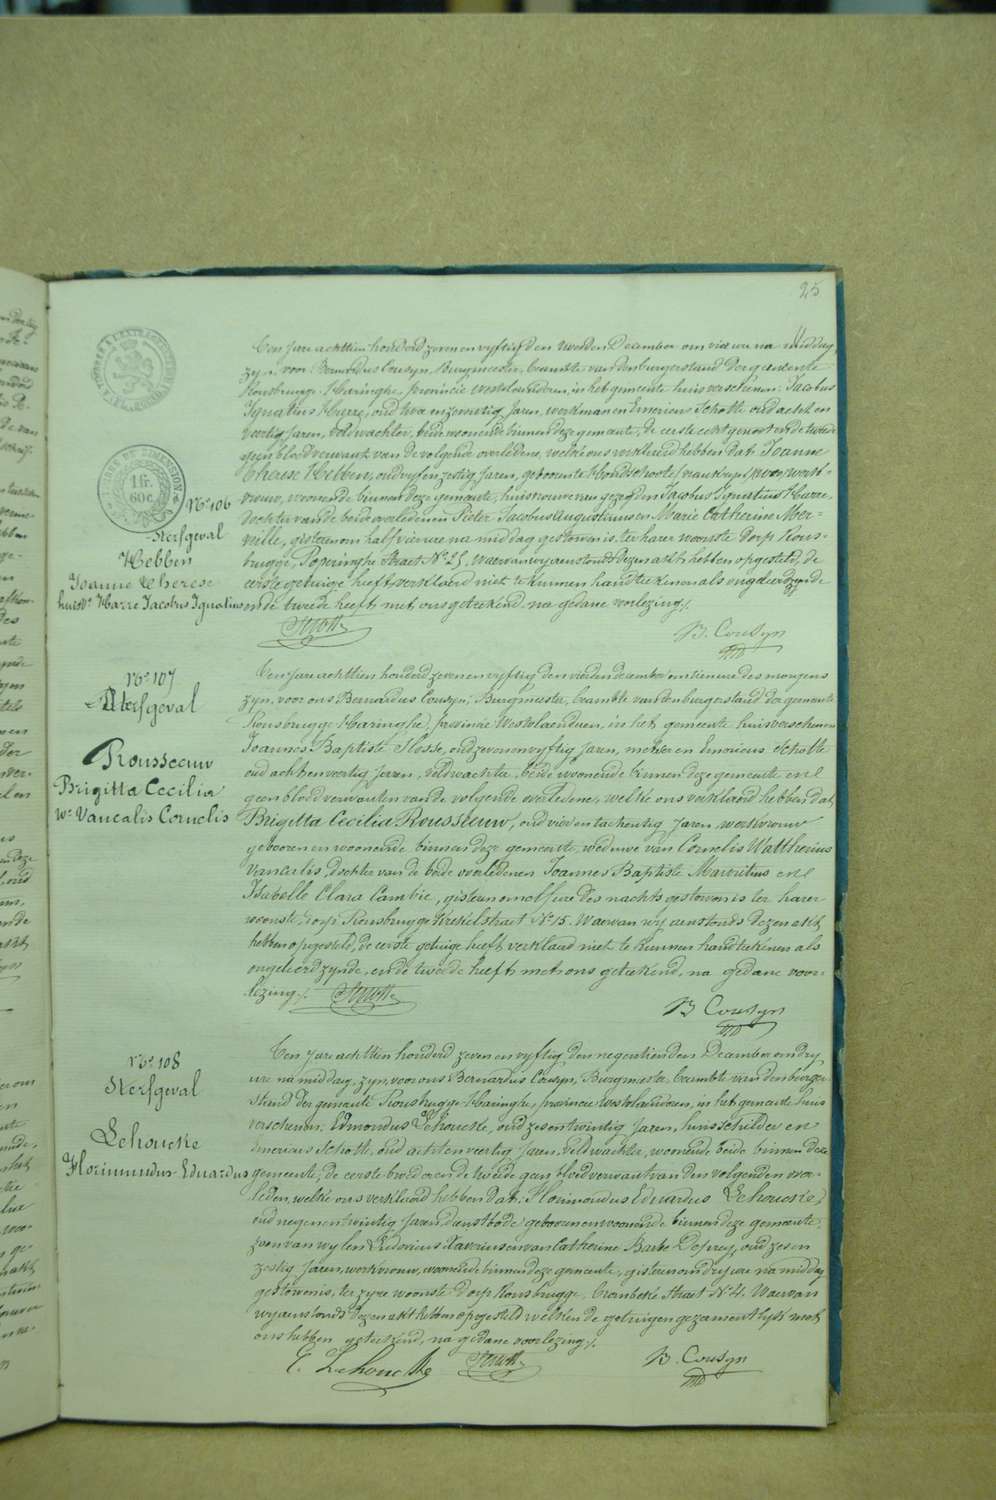 25
N° 106
Sterfgeval
Hebben
Joanne Therese
huisv.e Harre Jacobus Ignatius
Ten jare achttien honderd zeven en vyftig den vierden December om vier ure na middag,
zyn voor Bernardus Cousyn, Burgmeester, beambte van den burgerstand der gemeente
Rousbrugge-Haringhe, provincie Westvlaenderen, in het gemeente huis verschenen: Jacobus
Ignatius Harre, oud twa en zeventig Jaren, werkman en Emericus Schotte oud acht en
veertig Jaren, Veldwachter, beide woonende binnen deze gemeente, de eerste echtgenoot en de tweede
geen bloedverwant van de volgende overledene, welke ons verklaerd hebben dat Joanne
Therese Hebben, oud vyf en zestig Jaren, geboren te Hondschoote
vrouw, woonende binnen deze gemeente, huisvrouwe van gezegden Jacobus Ignatius Harre,
dochter van de beide overledenen Pieter Jacobus Augustinus en Marie Catherine Mer-
ville, gisteren om half vier ure na middag gestorven is, ter harer woonste Dorp Rous-
brugge, Poperinghe Straet N° 25, Waervan wy aenstonds dezen akt hebben opgesteld, de
eerste getuige heeft verklaerd niet te kunnen handteekenen als ongeleerd zynde
en de tweede heeft met ons geteekend na gedane voorlezing./.
Schotte B. Cousyn
N° 107
Sterfgeval
Rousseeuw
Brigitta Cecilia
We Vancalis Cornelis
Ten jare achttien honderd zeven en vyftig den vierden december om tien ure des morgens
zyn voor ons Bernardus Cousyn, Burgmeester, beambte van den burgerstand der gemeente
Rousbrugge-Haringhe, provincie Westvlaenderen, in het gemeente huis verschenen
Joannes Baptiste Flosse, oud zeven en vyftig Jaren, metser en Emericus Schotte
oud acht en veertig Jaren, veldwachter, beide woonende binnen deze gemeente en
geen bloedverwanten van de volgende overledene, welke ons verklaerd hebben dat
Brigitta Cecilia Rousseeuw, oud vier en tachentig Jaren, werkvrouw
geboren en woonende binnen deze gemeente, weduwe van Cornelis Wattherius
Vancalis, dochter van de beide overledenen Joannes Baptiste Mauritius en
Isabelle Clara Cambie, gisteren om elf ure des nachts gestorven is ter harer
woonste, Dorp Rousbrugge Krekelstraet N° 15. Waervan wy aenstonds dezen akt
hebben opgesteld, de eerste getuige heeft verklaerd niet te kunnen handteekenen als
ongeleerd zynde, en de tweede heeft met ons geteekend, na gedane voor-
lezing./. Schotte B Cousyn
N° 108
Sterfgeval
Lehoucke
Florimundus Eduardus
Ten jare achttien honderd zeven en vyftig den negentienden December om dry
ure na middag, zyn, voor ons Bernardus Cousyn, Burgmeester, beambte van den burger-
stand der gemeente Rousbrugge-Haringhe, provincie Westvlaenderen, in het gemeente huis
verschenen: Edmondus Lehoucke, oud zes en twintig Jaren, huisschilder en
Emericus Schotte, oud acht en veertig Jaren, Veldwachter, woonende beide binnen deze
gemeente, de eerste broeder en de tweede geen bloedverwant van den volgenden over-
leden, welke ons verklaerd hebben dat: Florimondus Eduardus Lehoucke,
oud negen en twintig Jaren, dienstbode geboren en woonende binnen deze gemeente,
zoon van wylen Liborius Xaverius en van Catherine Barbe Deprey, oud zes en
zestig Jaren, werkvrouw, woonende binnen deze gemeente, gisteren om dry ure na middag
gestorven is, ter zyne woonste, dorp Rousbrugge, Crombeke Straet N° 4. Waervan
wy aenstonds dezen akt hebben opgesteld welken de getuigen gezamentlyk met
ons hebben geteekend, na gedane voorlezing./.
E. Lehoucke Schotte B. Cousyn